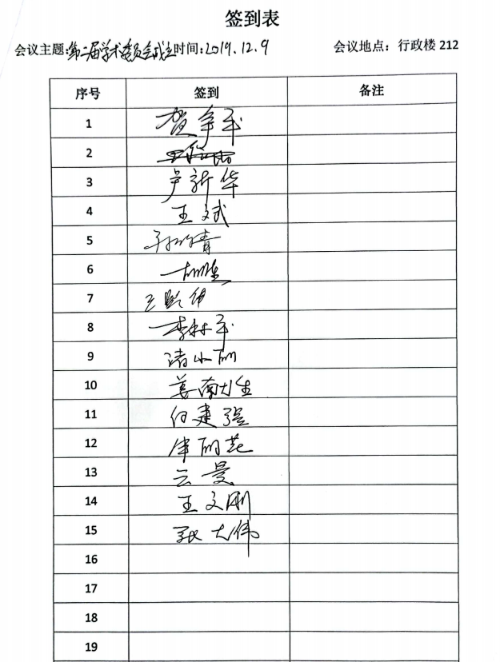 签到表
会议主题:第二届学术委员会成立 时间:2019.12.9 会议地点：行政楼 212
序号 签到 备注
1 贺争平
2
3 卢新华
4 王斌
5
6
7
8 李林平
9 诸小丽
10
11 何建强
12
13 云曼
14 王文刚
15 张大伟
16
17
18
19